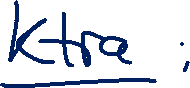 Ktra ;